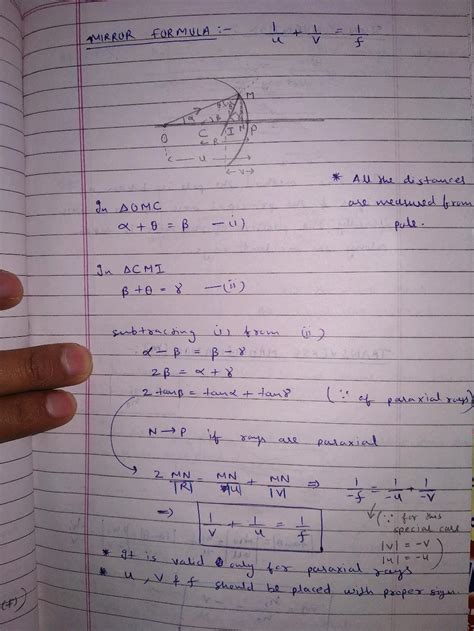 MIRROR FORMULA :- 1/u + 1/v = 1/f
M
α
β
θ
O
C
I
N
P
R
u
v
* All the distances
are measured from
pole.
In ΔOMC
α + θ = β —(i)
In ΔCMI
β + θ = γ —(ii)
subtracting (i) from (ii)
α - β = β - γ
2β = α + γ
2 tanβ = tanα + tanγ (∵ of paraxial rays)
N → P if rays are paraxial
2 MN/|R| = MN/|u| + MN/|v| ⇒ 1/-f = 1/-u + 1/-v
⇒ 1/v + 1/u = 1/f
(∵ for this
special case
|v| = -v
|u| = -u)
* It is valid only for paraxial rays
* u, v & f should be placed with proper sign.